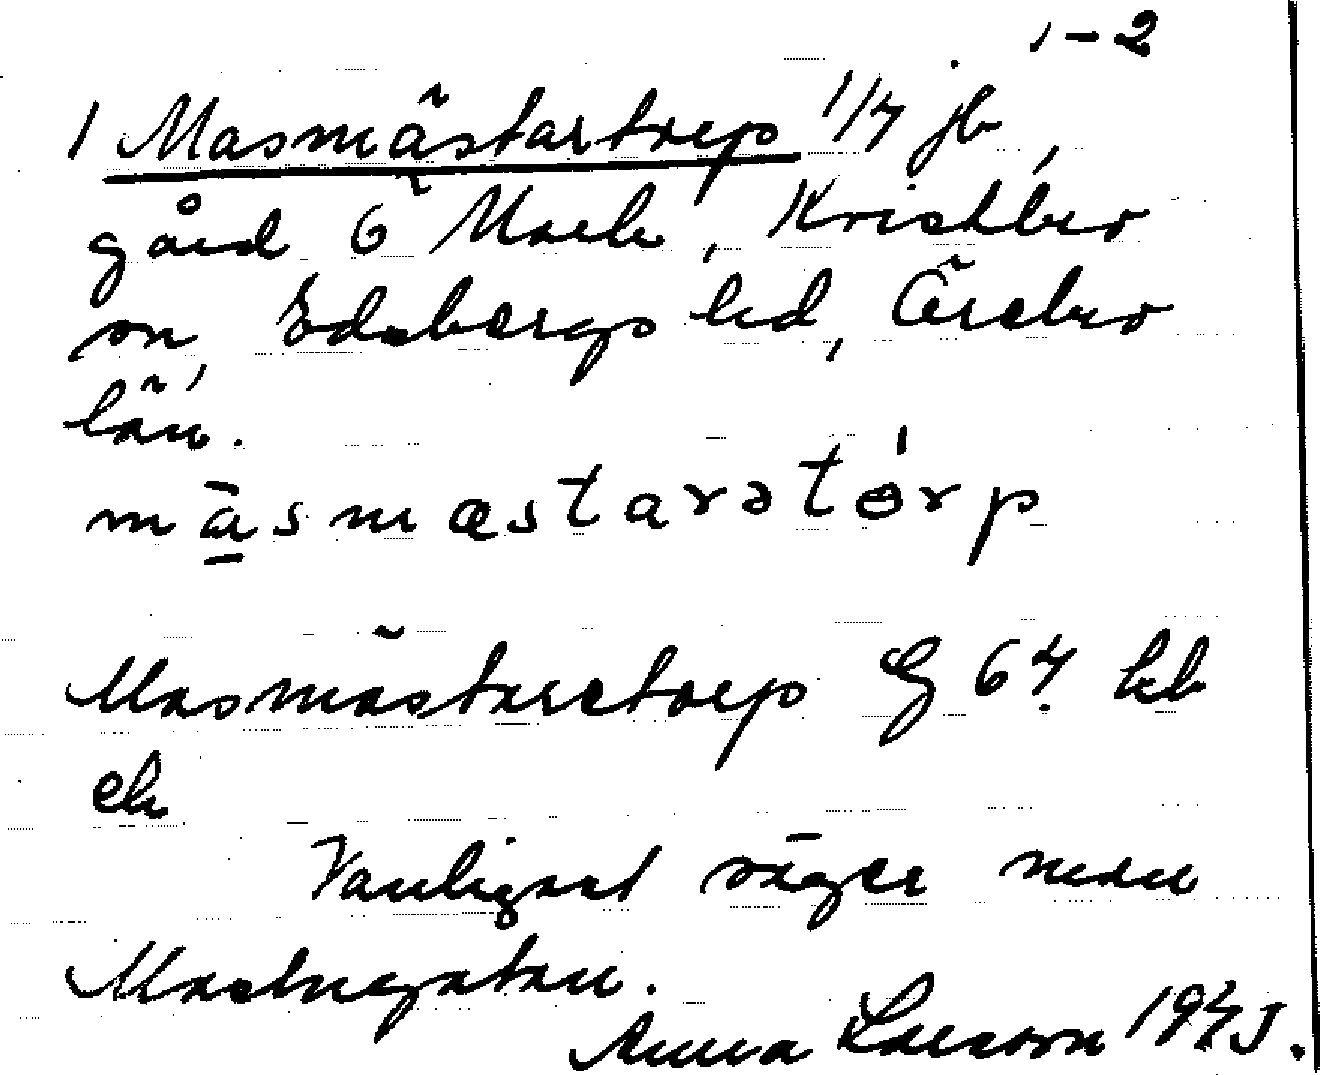 1-2
1 Masmästartorp 1/4 jb
gård 6 Mark, Kristber
sn, Edsbergs hd, Örebro
län.
mās mæstaratórp
Masmästaretorp G 64 kb
ek
Vanligast säger man
Mastugatan.
Anna Larsson 1945.